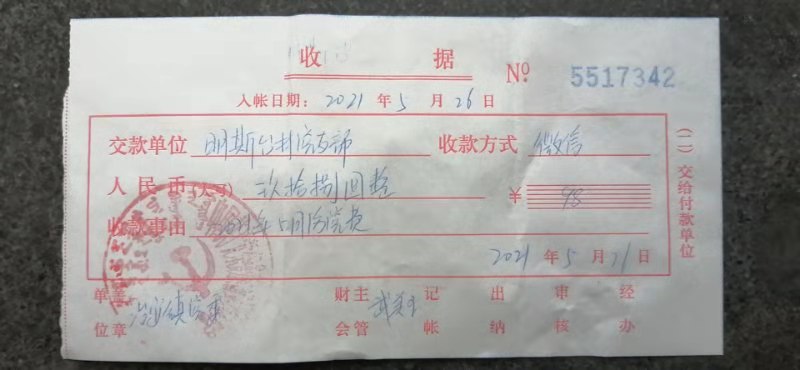 收 据 Nº 5517342
入帐日期: 2021 年 5 月 26 日
交款单位 明斯台村党支部 收款方式 微信
人民币(大写) 捌圆整 ¥ 98
收款事由 2021年5月份党费
2021 年 5 月 21 日
(二)交给付款单位
单盖位章 财主会管 记帐 出纳 审核 经办